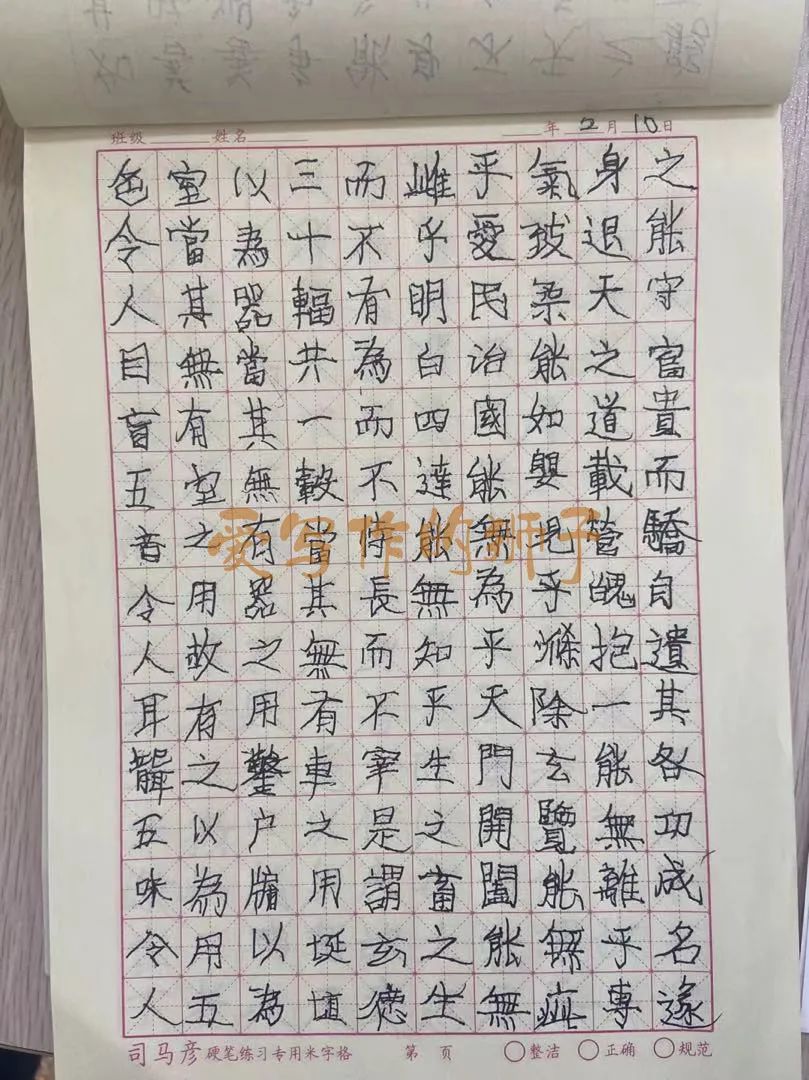 班级 姓名 年 2 月 10 日
之能守富貴而驕自遺其各功成名遂
身退天之道載營魄抱一能無離乎專
氣致柔能如嬰児乎滌除玄覽能無疵
乎愛民治國能無為乎天門開闔能無
雌乎明白四達能無知乎生之畜之生
而不有為而不恃長而不宰是謂玄德
三十輻共一轂當其無有車之用埏埴
以為器當其無有器之用鑿户牖以為
室當其無有室之用故有之以為用五
色令人目盲五音令人耳聾五味令人
爱写作的狮子
司马彦 硬笔练习专用米字格 第 页 整洁 正确 规范